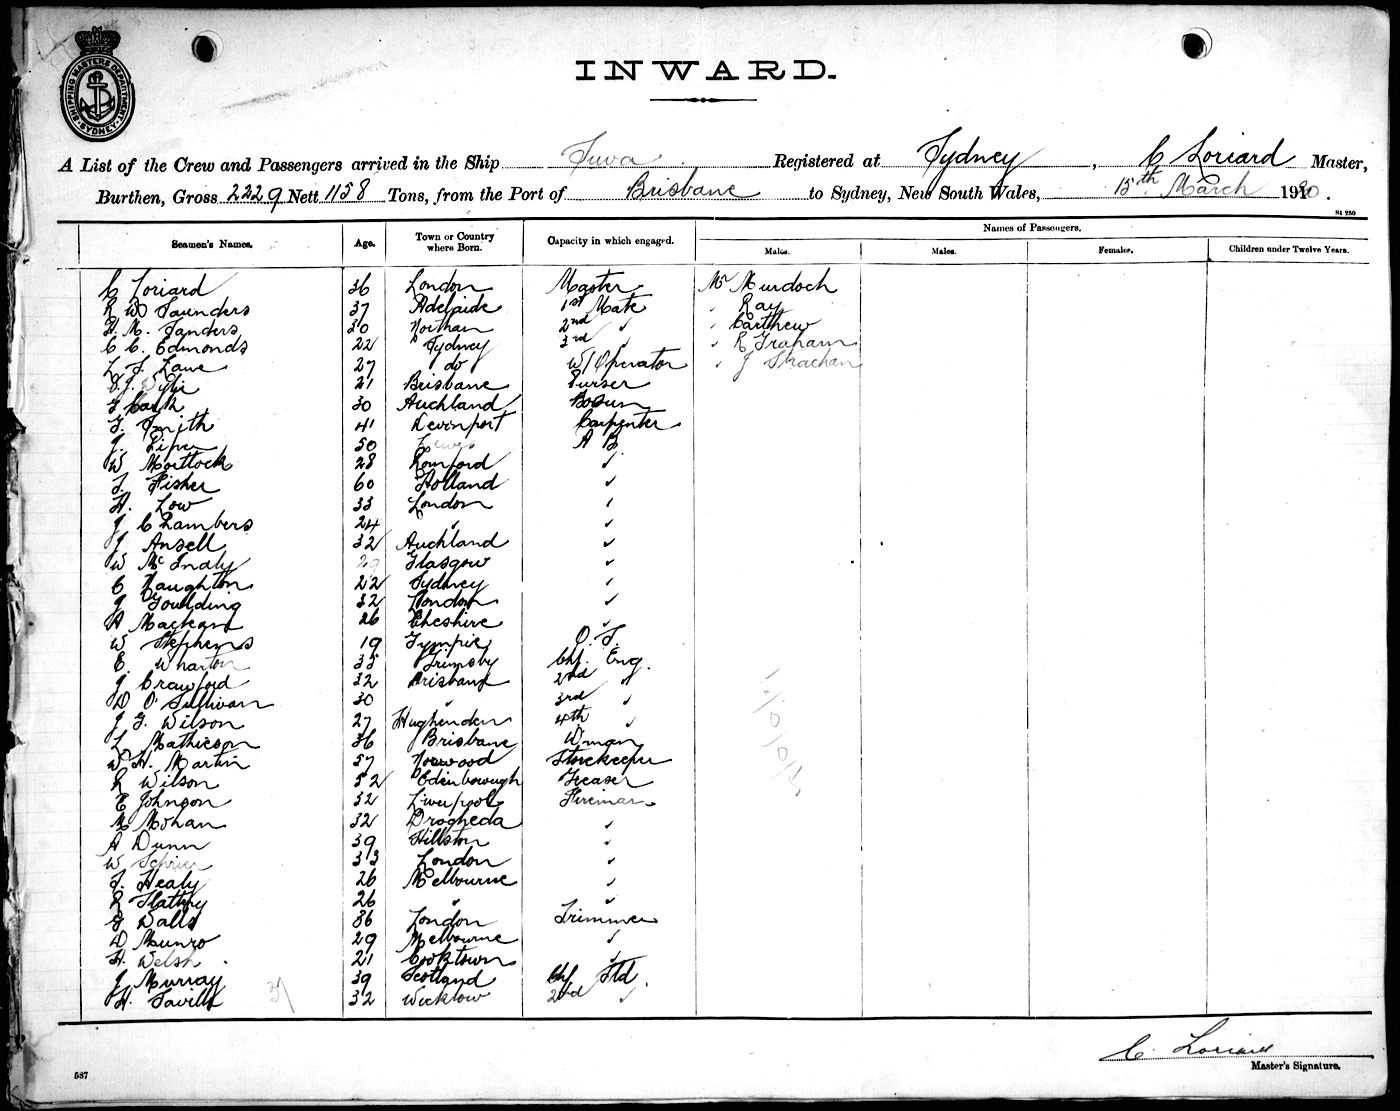 SHIPPING MASTERS DEPARTMENT SYDNEY
INWARD.
A List of the Crew and Passengers arrived in the Ship Suva Registered at Sydney, C Loriard Master,
Burthen, Gross 2229 Nett 1158 Tons, from the Port of Brisbane to Sydney, New South Wales, 15th March 1920.
St 250
Seamen's Names. Age. Town or Country where Born. Capacity in which engaged. Names of Passengers.
Males. Males. Females. Children under Twelve Years.
C Loriard 36 London Master Mr Murdoch
R W Saunders 37 Adelaide 1st Mate " Ray
H. M. Sanders 30 2nd " " Carthew
C C. Edmonds 22 Sydney 3rd " " R Graham
L. S. Lane 27 do W/Operator " J Strachan
Wylie 21 Brisbane Purser
30 Auckland Bosun
Smith 41 Devonport Carpenter
J. 50 A B.
W Mortlock 28 Romford "
Fisher 60 Holland "
H. Low 33 London "
J Chambers 24 " "
J Ansell 32 Auckland "
W 29 Glasgow "
C Naughton 22 Sydney "
J Goulding 32 London "
A 26 Cheshire "
W Stephens 19 Gympie O. S.
E. Wharton 35 Grimsby Chf. Eng.
J Crawford 32 Brisbane 2nd "
D O'Sullivan 30 " 3rd "
J G. Wilson 27 Hughenden 4th "
L. Mathieson 36 Brisbane Wman
W H. Martin 57 Norwood Storekeeper
R Wilson 52 Edenborough Greaser
E Johnson 32 Liverpool Fireman
M Mohan 32 Drogheda "
A Dunn 39 Hillston "
W 33 London "
Healy 26 Melbourne "
Slattery 26 " "
Walls 36 London Trimmer
D Munro 29 Melbourne "
H. Welsh 21 Cooktown "
J Murray 39 Scotland Chf Std.
H. Savill 32 Wicklow 2nd "
37
C. Loriard
Master's Signature.
587